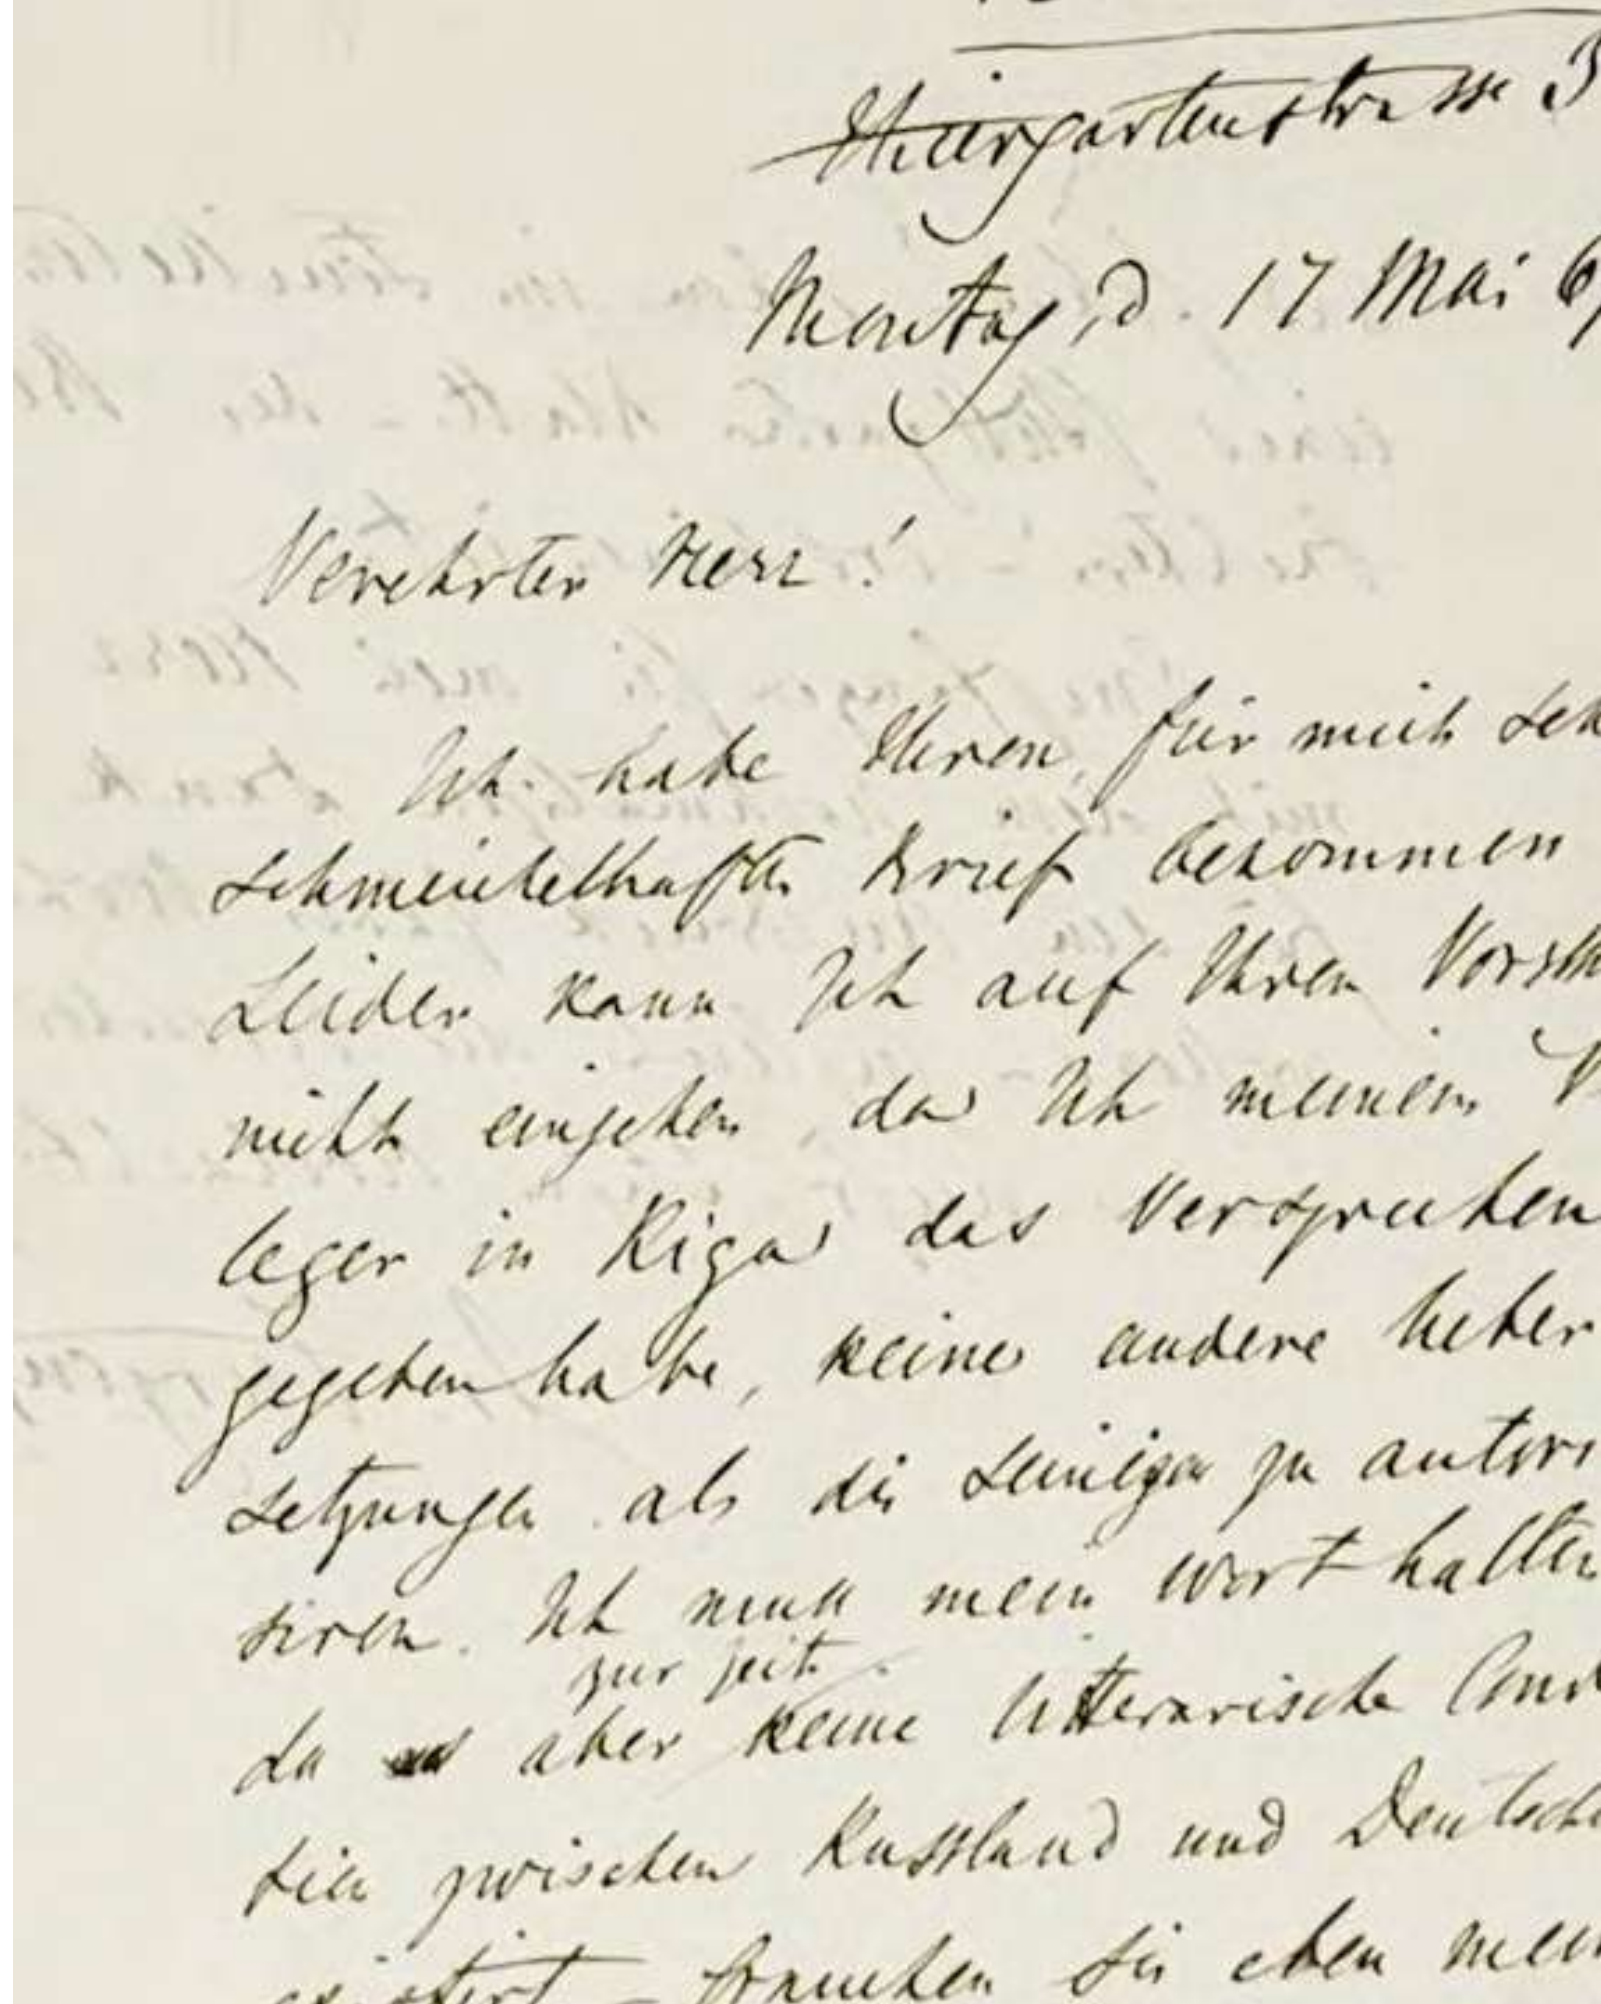 Thiergartenstrasse 3
Montag, d. 17 Mai 69
Verehrter Herr!
Ich habe Ihren, für mich seh
schmeichelhaften Brief bekommen
Leider kann Ich auf Ihren Vorsch
nicht eingehen, da Ich meinem V
leger in Riga das Versprechen
gegeben habe, keine andere Ueber
setzungen als die seinigen zu autori
siren. Ich muss mein Wort halten
zur Zeit
da aber keine litterarische Conv
tion zwischen Russland und Deutsch
existirt – brauchen Sie eben mein